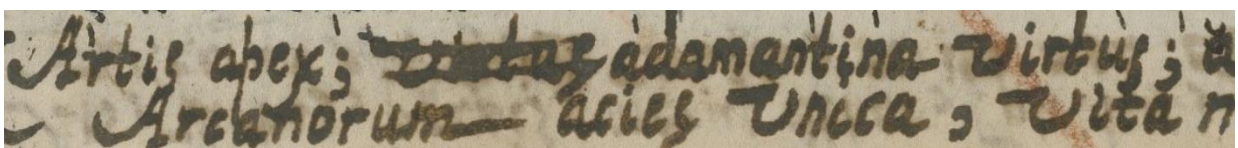 Artis apex; Virtus adamantina Virtus;
Arcanorum acies Unica, Vita